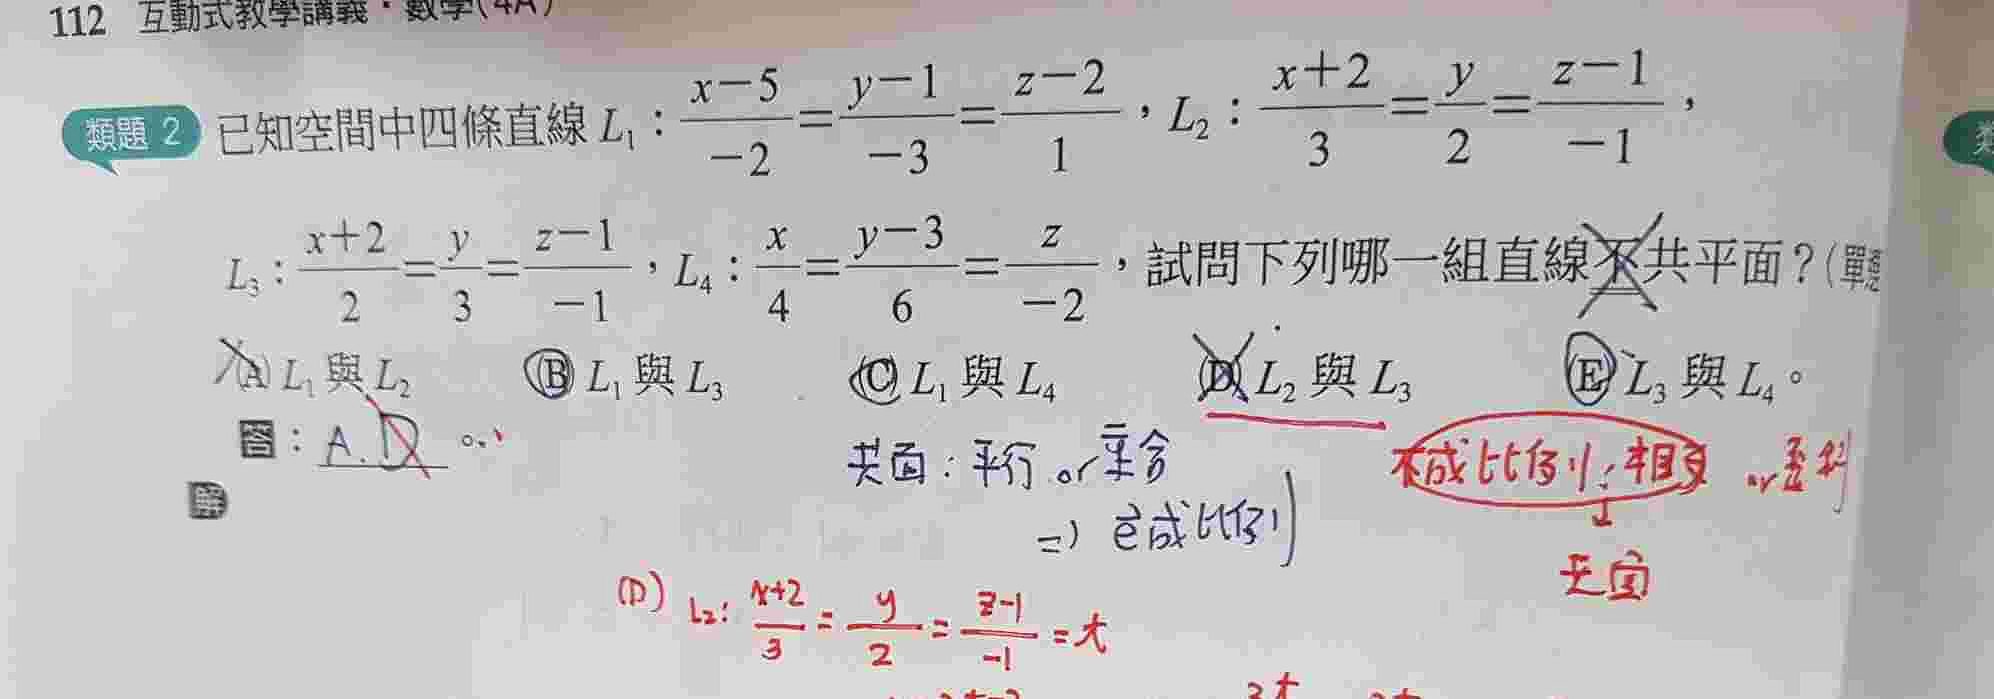 112 互動式教學講義・數學(4A)
類題 2 已知空間中四條直線 L₁：(x−5)/−2=(y−1)/−3=(z−2)/1，L₂：(x+2)/3=y/2=(z−1)/−1，
L₃：(x+2)/2=y/3=(z−1)/−1，L₄：x/4=(y−3)/6=z/−2，試問下列哪一組直線不共平面？(單
(A) L₁與L₂ (B) L₁與L₃ (C) L₁與L₄ (D) L₂與L₃ (E) L₃與L₄。
答：A.D。
共面：平行 or 重合
不成比例：相交 or 歪斜
⇒ 會成比例
解
共面
(D) L₂: (x+2)/3 = y/2 = (z−1)/−1 = t